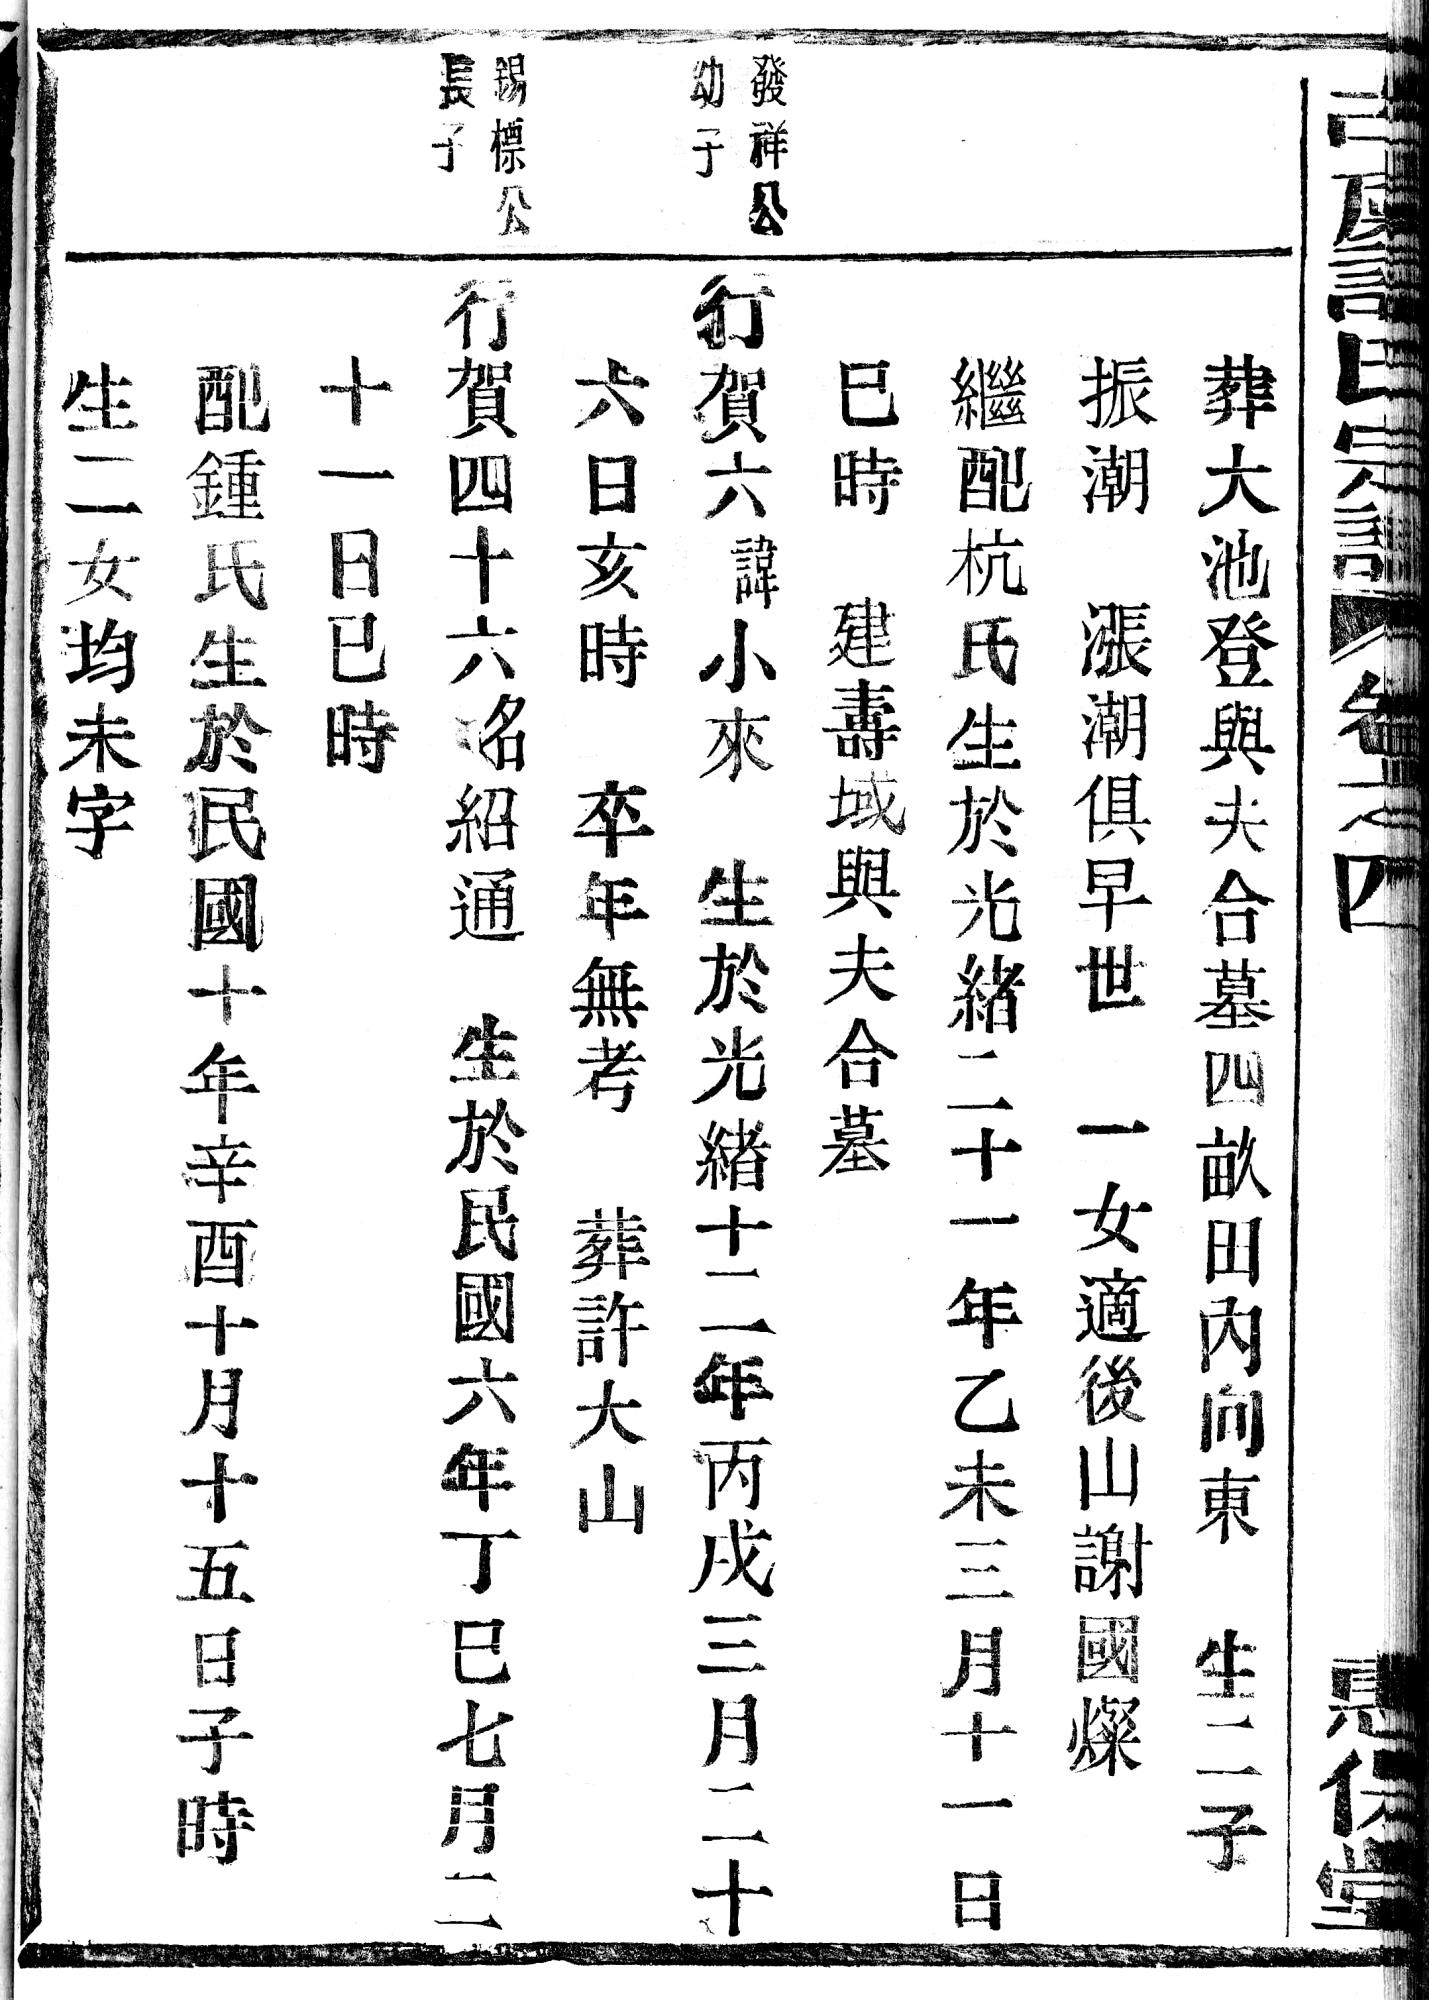 氏宗譜 卷之四
堂
葬大池登與夫合墓四畝田內向東　生二子
振潮　漲潮俱早世　一女適後山謝國燦
繼配杭氏生於光緒二十一年乙未三月十一日
巳時　建壽域與夫合墓
發祥公
幼子
行賀六諱小來　生於光緒十二年丙戌三月二十
六日亥時　卒年無考　葬許大山
錫標公
長子
行賀四十六名紹通　生於民國六年丁巳七月二
十一日巳時
配鍾氏生於民國十年辛酉十月十五日子時
生二女均未字